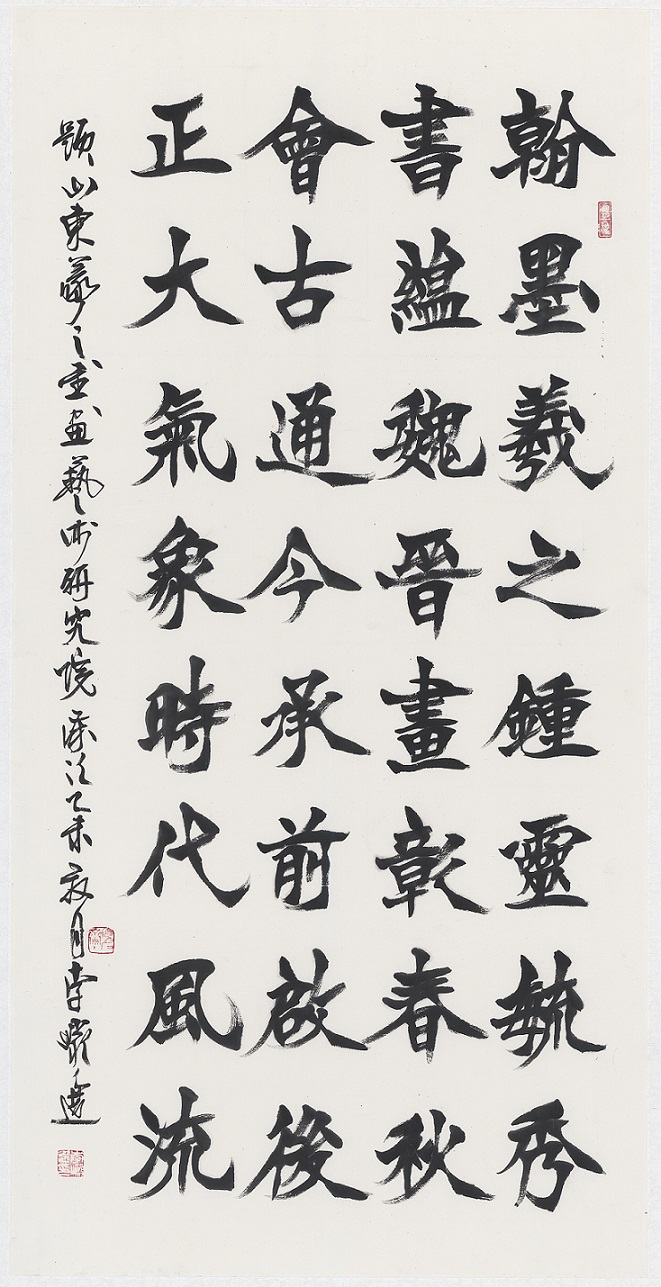 翰墨羲之鍾靈毓秀
書蘊魏晉畫彰春秋
會古通今承前啟後
正大氣象時代風流
題山東羲之書画藝术研究院 乙未 月李